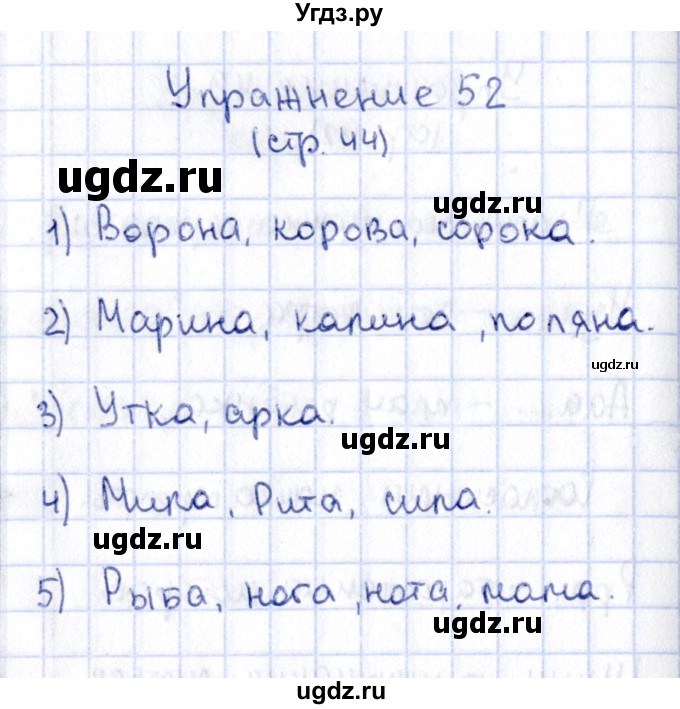 Угдз.ру
Упражнение 52
(стр. 44)
ugdz.ru
ugdz.ru
1) Ворона, корова, сорока.
2) Марина, калина, поляна.
ugdz.ru
3) Утка, арка.
ugdz.ru
4) Мила, Рита, сила.
ugdz.ru
5) Рыба, нога, нота, мама.
ugdz.ru
ugdz.ru